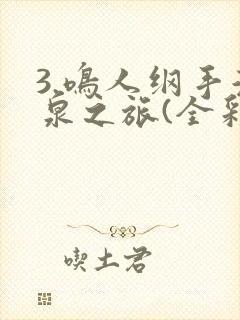 3.鸣人纲手
泉之旅(全彩
喫土君